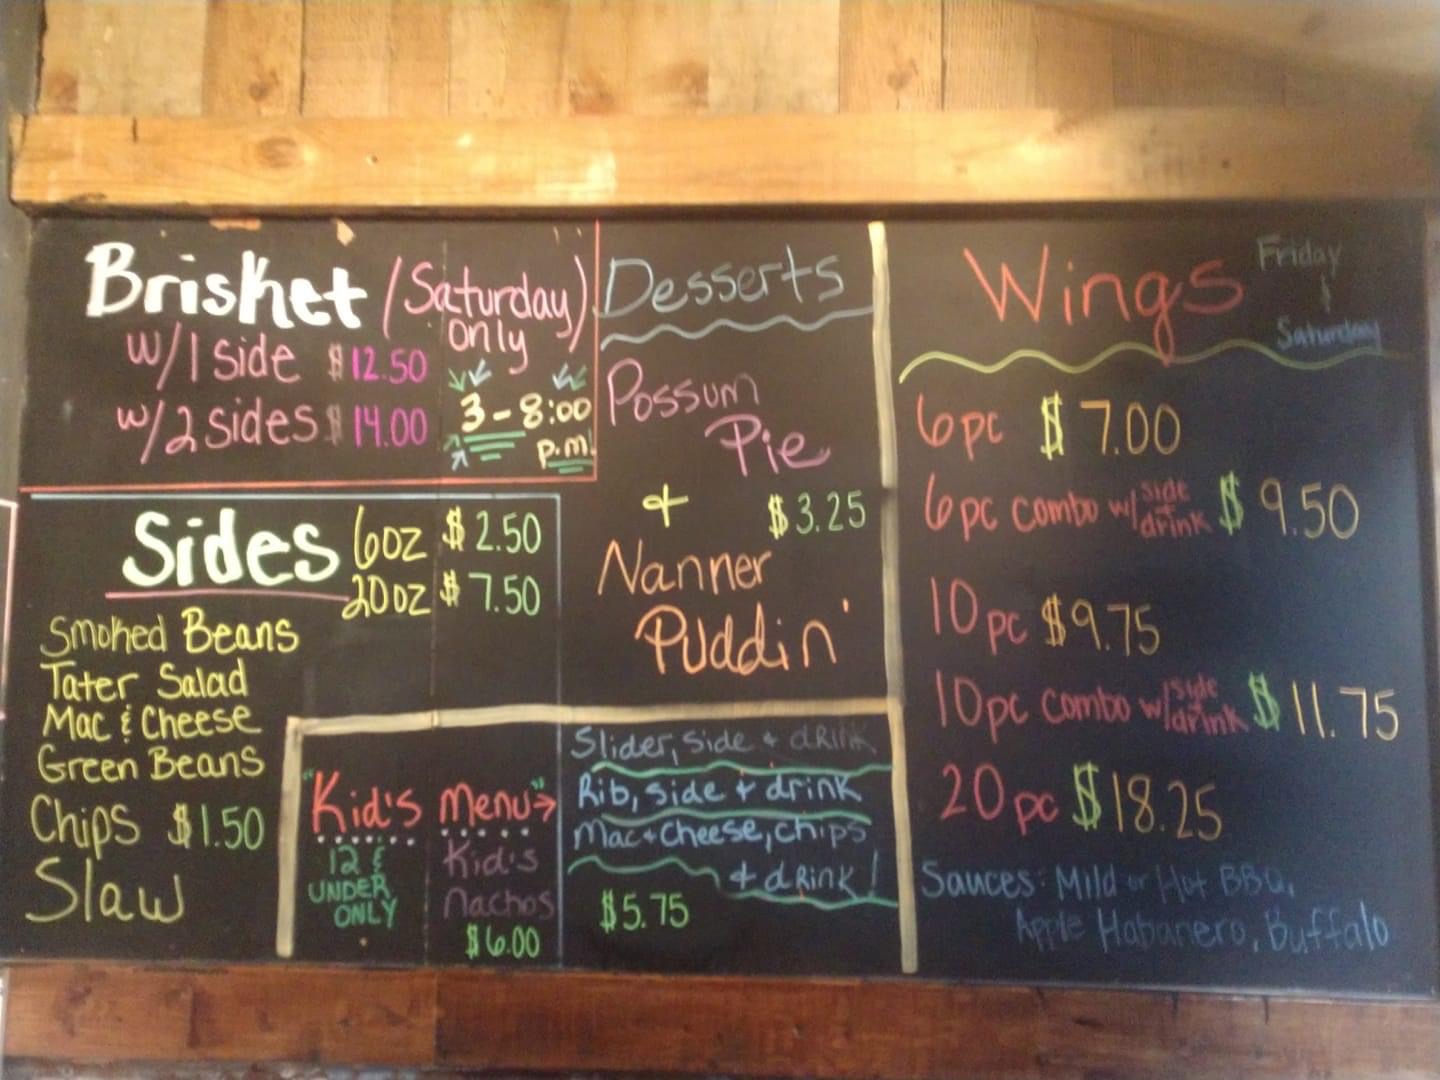 Brisket (Saturday only)
w/1 side $12.50
w/2 sides $14.00
3 - 8:00
p.m!
Sides 6oz $2.50
20oz $7.50
Smoked Beans
Tater Salad
Mac & Cheese
Green Beans
Chips $1.50
Slaw
"Kid's Menu"
12 &
UNDER
ONLY
Kid's
Nachos
$6.00
Slider, side + drink
Rib, side + drink
Mac + Cheese, chips
+ drink!
$5.75
Desserts
Possum
Pie
+ $3.25
Nanner
Puddin'
Wings Friday
&
Saturday
6pc $7.00
6pc combo w/ side + drink $9.50
10pc $9.75
10pc combo w/ side + drink $11.75
20pc $18.25
Sauces: Mild or Hot BBQ,
Apple Habanero, Buffalo